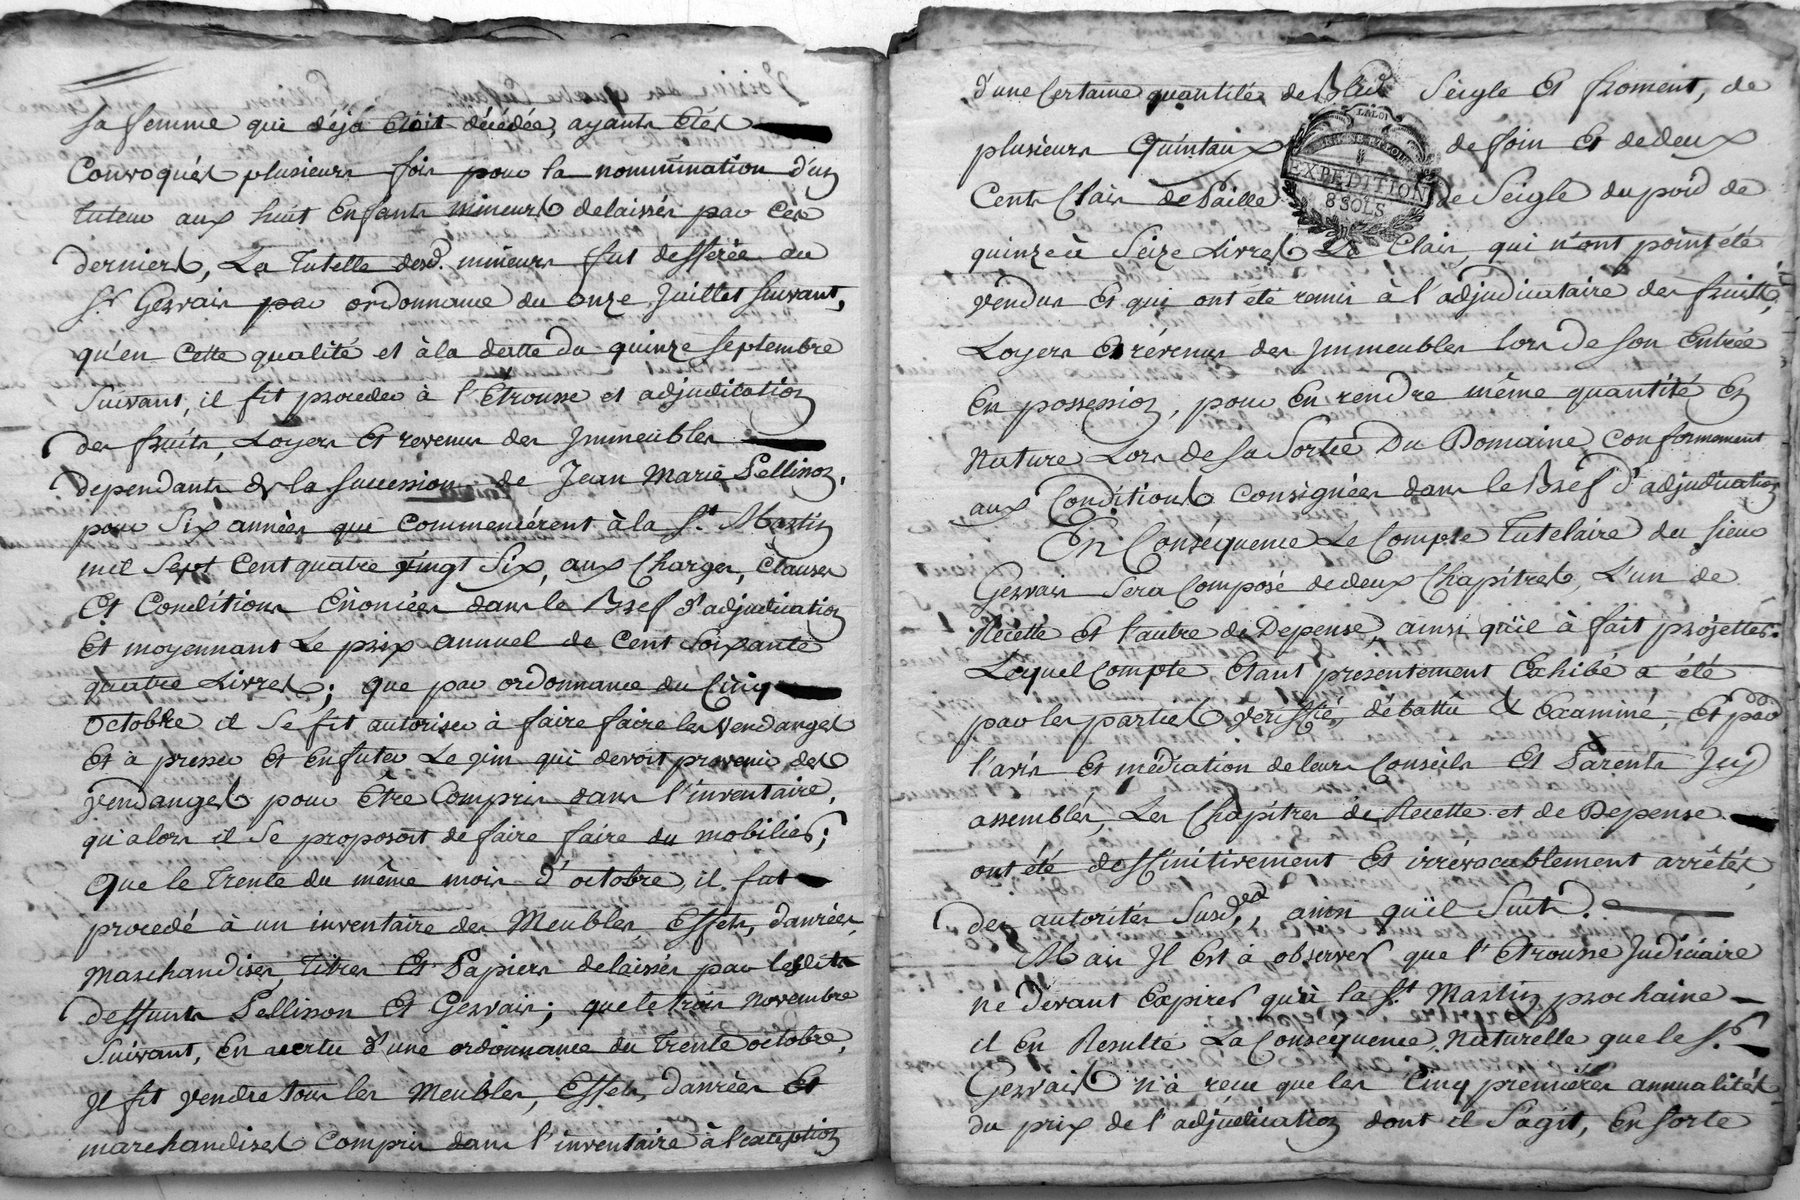 sa femme qui déjà étoit décédée, ayants étés
Convoqués plusieurs fois pour la nommination d'un
tuteur aux huit Enfants mineurs delaissés par ces
derniers, La Tutelle desd. mineurs fut defférée au
Sr. Gervais par ordonnance du onze Juillet suivant,
qu'en cette qualité et à la datte du quinze septembre
suivant, il fit proceder à l'Etrousse et adjudication
des fruits, Loyers Et revenus des Immeubles
dependants de la succession de Jean Marie Pellisson,
pour Six années qui commencérent à la St. Martin
mil Sept Cent quatre vingt Six, aux Charges, Clauses
Et Conditions Enoncées dans le Bref d'adjudication
Et moyennant Le prix annuel de Cent Soixante
quatre Livres; que par ordonnance du Cinq
Octobre il se fit autoriser à faire faire les vendanges
Et à presser Et Enfuter Le vin qui devoit provenir des
vendanges pour Etre Compris dans l'inventaire,
qu'alors il se proposoit de faire faire du mobilier;
Que le trente du même mois d'octobre, il fut
procedé à un inventaire des Meubles Effets, danrées,
Marchandises, Titres Et Papiers delaissés par lesdits
deffunts Pellisson Et Gervais; que le trois Novembre
suivant, En vertu d'une ordonnance du Trente octobre,
Il fit vendre tous les Meubles, Effets, danrées Et
marchandises Compris dans l'inventaire à l'exception
d'une Certaine quantité de Bled Seigle Et froment, de
plusieurs Quintaux de foin Et de deux
Cents Clais de Paille de Seigle du poid de
quinze à Seize Livres La Clais, qui n'ont point été
vendus Et qui ont été remis à l'adjudicataire des fruits,
Loyers Et révenus des Immeubles lors de son Entrée
En possession, pour En rendre même quantité En
Nature Lors de sa Sortie Du Domaine, Conformement
aux Conditions Consignées dans le Bref d'adjudication
En Conséquence Le Compte Tutelaire du sieur
Gervais Sera Composé de deux Chapitres, L'un de
Recette Et l'autre de Depense, ainsi qu'il à fait projetter.
Lequel Compte Etant presentement Exhibé a été
par les parties veriffié, débattu & Examiné, Et par
l'avis Et médiation de leurs Conseils Et Parents Icy
assemblés, Les Chapitres de Recette et de Depense
ont été deffinitivement Et irrévocablement arrêtés,
des autorités Susd.es, ainsi qu'il Suit.
Mais Il Est à observer que l'Etrousse Judiciaire
ne devant Expirer qu'à la St. Martin prochaine
il En Resulte La Conséquence Naturelle que le Sr.
Gervais n'à reçu que les Cinq premiéres annualités
du prix de l'adjudication dont il s'agit, En sorte
LA LOI
EXPEDITION
8 SOLS